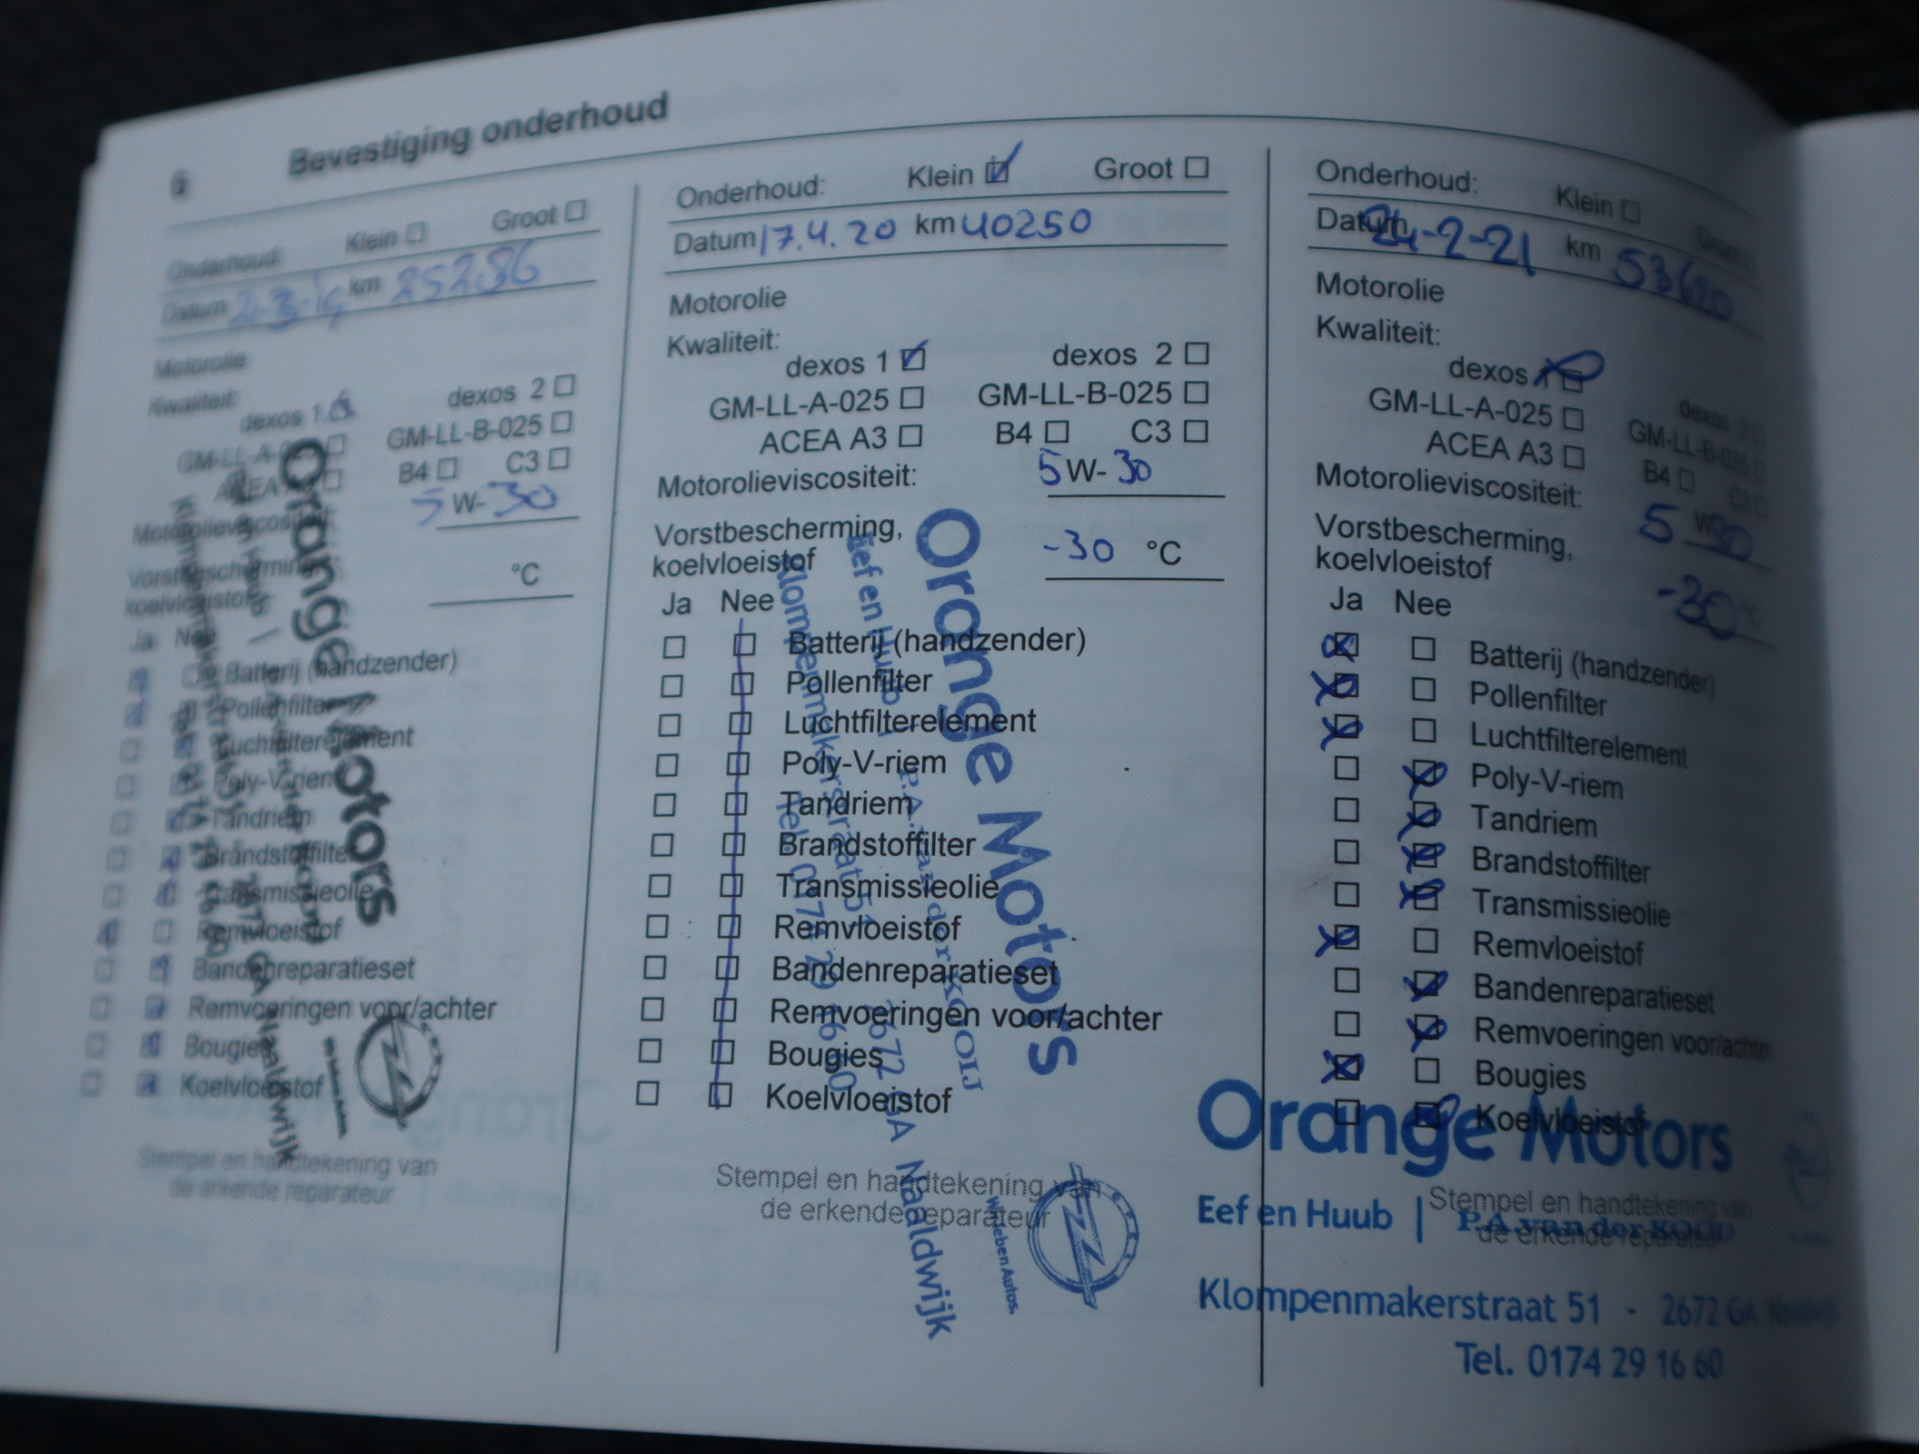 6 Bevestiging onderhoud
Onderhoud: Klein Groot
Datum km 25286
Motorolie
Kwaliteit:
dexos 1 dexos 2
GM-LL-A-025 GM-LL-B-025
ACEA A3 B4 C3
Motorolieviscositeit: 5 W- 30
Vorstbescherming,
koelvloeistof °C
Ja Nee
Batterij (handzender)
Pollenfilter
Luchtfilterelement
Poly-V-riem
Tandriem
Brandstoffilter
Transmissieolie
Remvloeistof
Bandenreparatieset
Remvoeringen voor/achter
Bougies
Koelvloeistof
Stempel en handtekening van
de erkende reparateur
Orange Motors
Naaldwijk
Onderhoud: Klein Groot
Datum 17.4.20 km 40250
Motorolie
Kwaliteit:
dexos 1 dexos 2
GM-LL-A-025 GM-LL-B-025
ACEA A3 B4 C3
Motorolieviscositeit: 5 W- 30
Vorstbescherming,
koelvloeistof -30 °C
Ja Nee
Batterij (handzender)
Pollenfilter
Luchtfilterelement
Poly-V-riem
Tandriem
Brandstoffilter
Transmissieolie
Remvloeistof
Bandenreparatieset
Remvoeringen voor/achter
Bougies
Koelvloeistof
Stempel en handtekening van
de erkende reparateur
Orange Motors
Eef en Huub | P.A. van der KOOIJ
Klompenmakerstraat 51 - 2672 GA Naaldwijk
Tel. 0174 29 16 60
Wij leben Autos.
Onderhoud: Klein Groot
Datum 24-2-21 km 53620
Motorolie
Kwaliteit:
dexos 1 dexos 2
GM-LL-A-025 GM-LL-B-025
ACEA A3 B4 C3
Motorolieviscositeit: 5 W- 30
Vorstbescherming,
koelvloeistof -30 °C
Ja Nee
Batterij (handzender)
Pollenfilter
Luchtfilterelement
Poly-V-riem
Tandriem
Brandstoffilter
Transmissieolie
Remvloeistof
Bandenreparatieset
Remvoeringen voor/achter
Bougies
Koelvloeistof
Orange Motors
Stempel en handtekening van
de erkende reparateur
Eef en Huub | P.A. van der KOOIJ
Klompenmakerstraat 51 - 2672 GA Naaldwijk
Tel. 0174 29 16 60